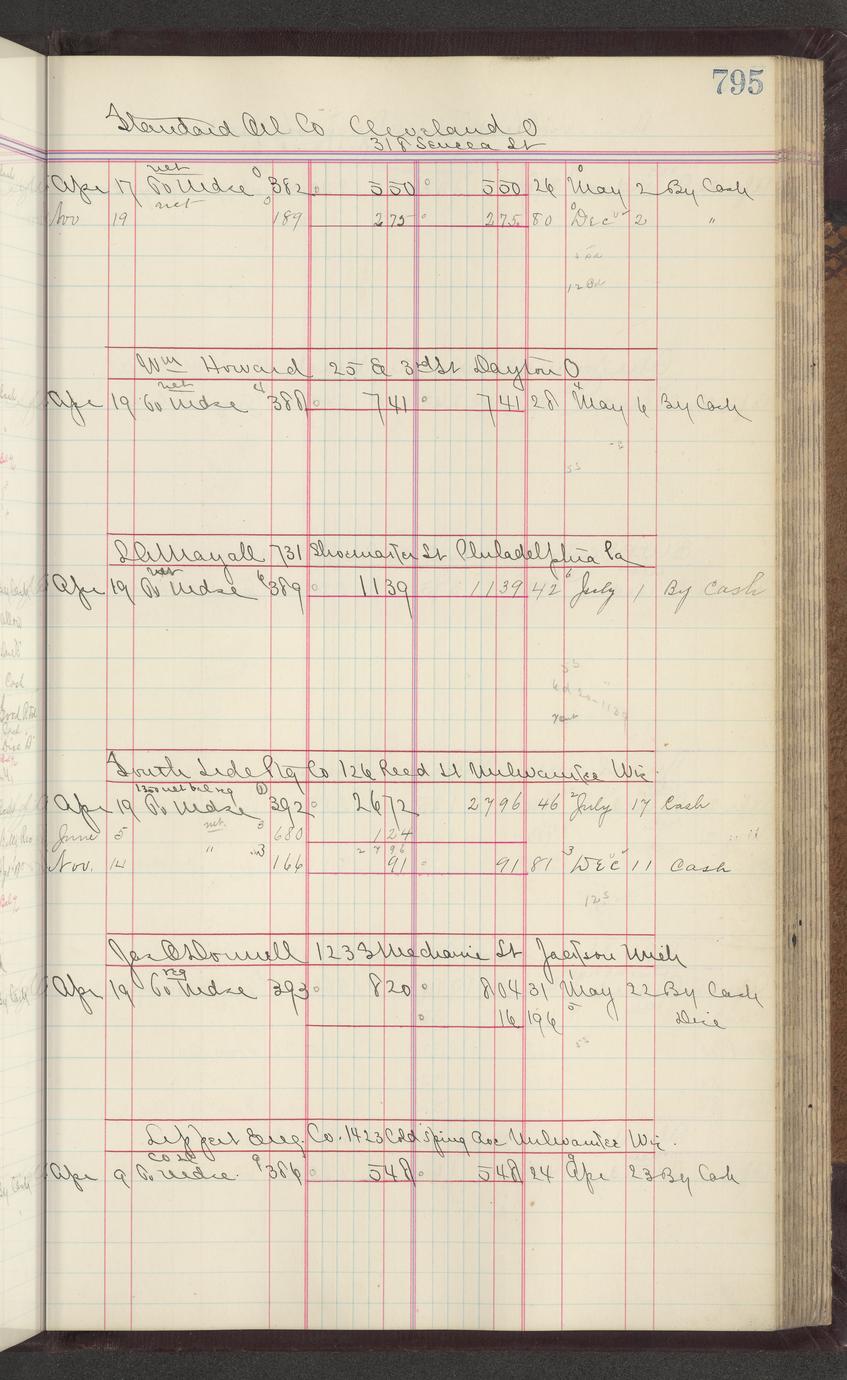 795
Standard Oil Co Cleveland O
318 Seneca St
net
Apr 17 To Mdse 382 550 550 26 May 2 By Cash
net
Nov 19 189 275 275 80 Dec 2 "
Wm Howard 25 E 3rd St Dayton O
net
Apr 19 To Mdse 4 388 741 741 28 May 6 By Cash
Mayall 731 Shoemaker St Philadelphia Pa
net
Apr 19 To Mdse 6 389 1139 1139 42 July 1 By Cash
South Side Co 126 Reed St Milwaukee Wis.
net
Apr 19 To Mdse 392 2672 2796 46 July 17 Cash
June 5 net 3 680 124
2796
Nov. 14 " 3 166 91 91 81 Dec 11 Cash
Jas O'Donnell 1233 Mechanic St Jackson Mich
reg
Apr 19 To Mdse 393 820 804 31 May 22 By Cash
16 196 Disc
Leppert Eng. Co. 1423 Cold Spring Ave Milwaukee Wis.
Apr 9 To Mdse. 9 386 548 548 24 Apr 23 By Cash